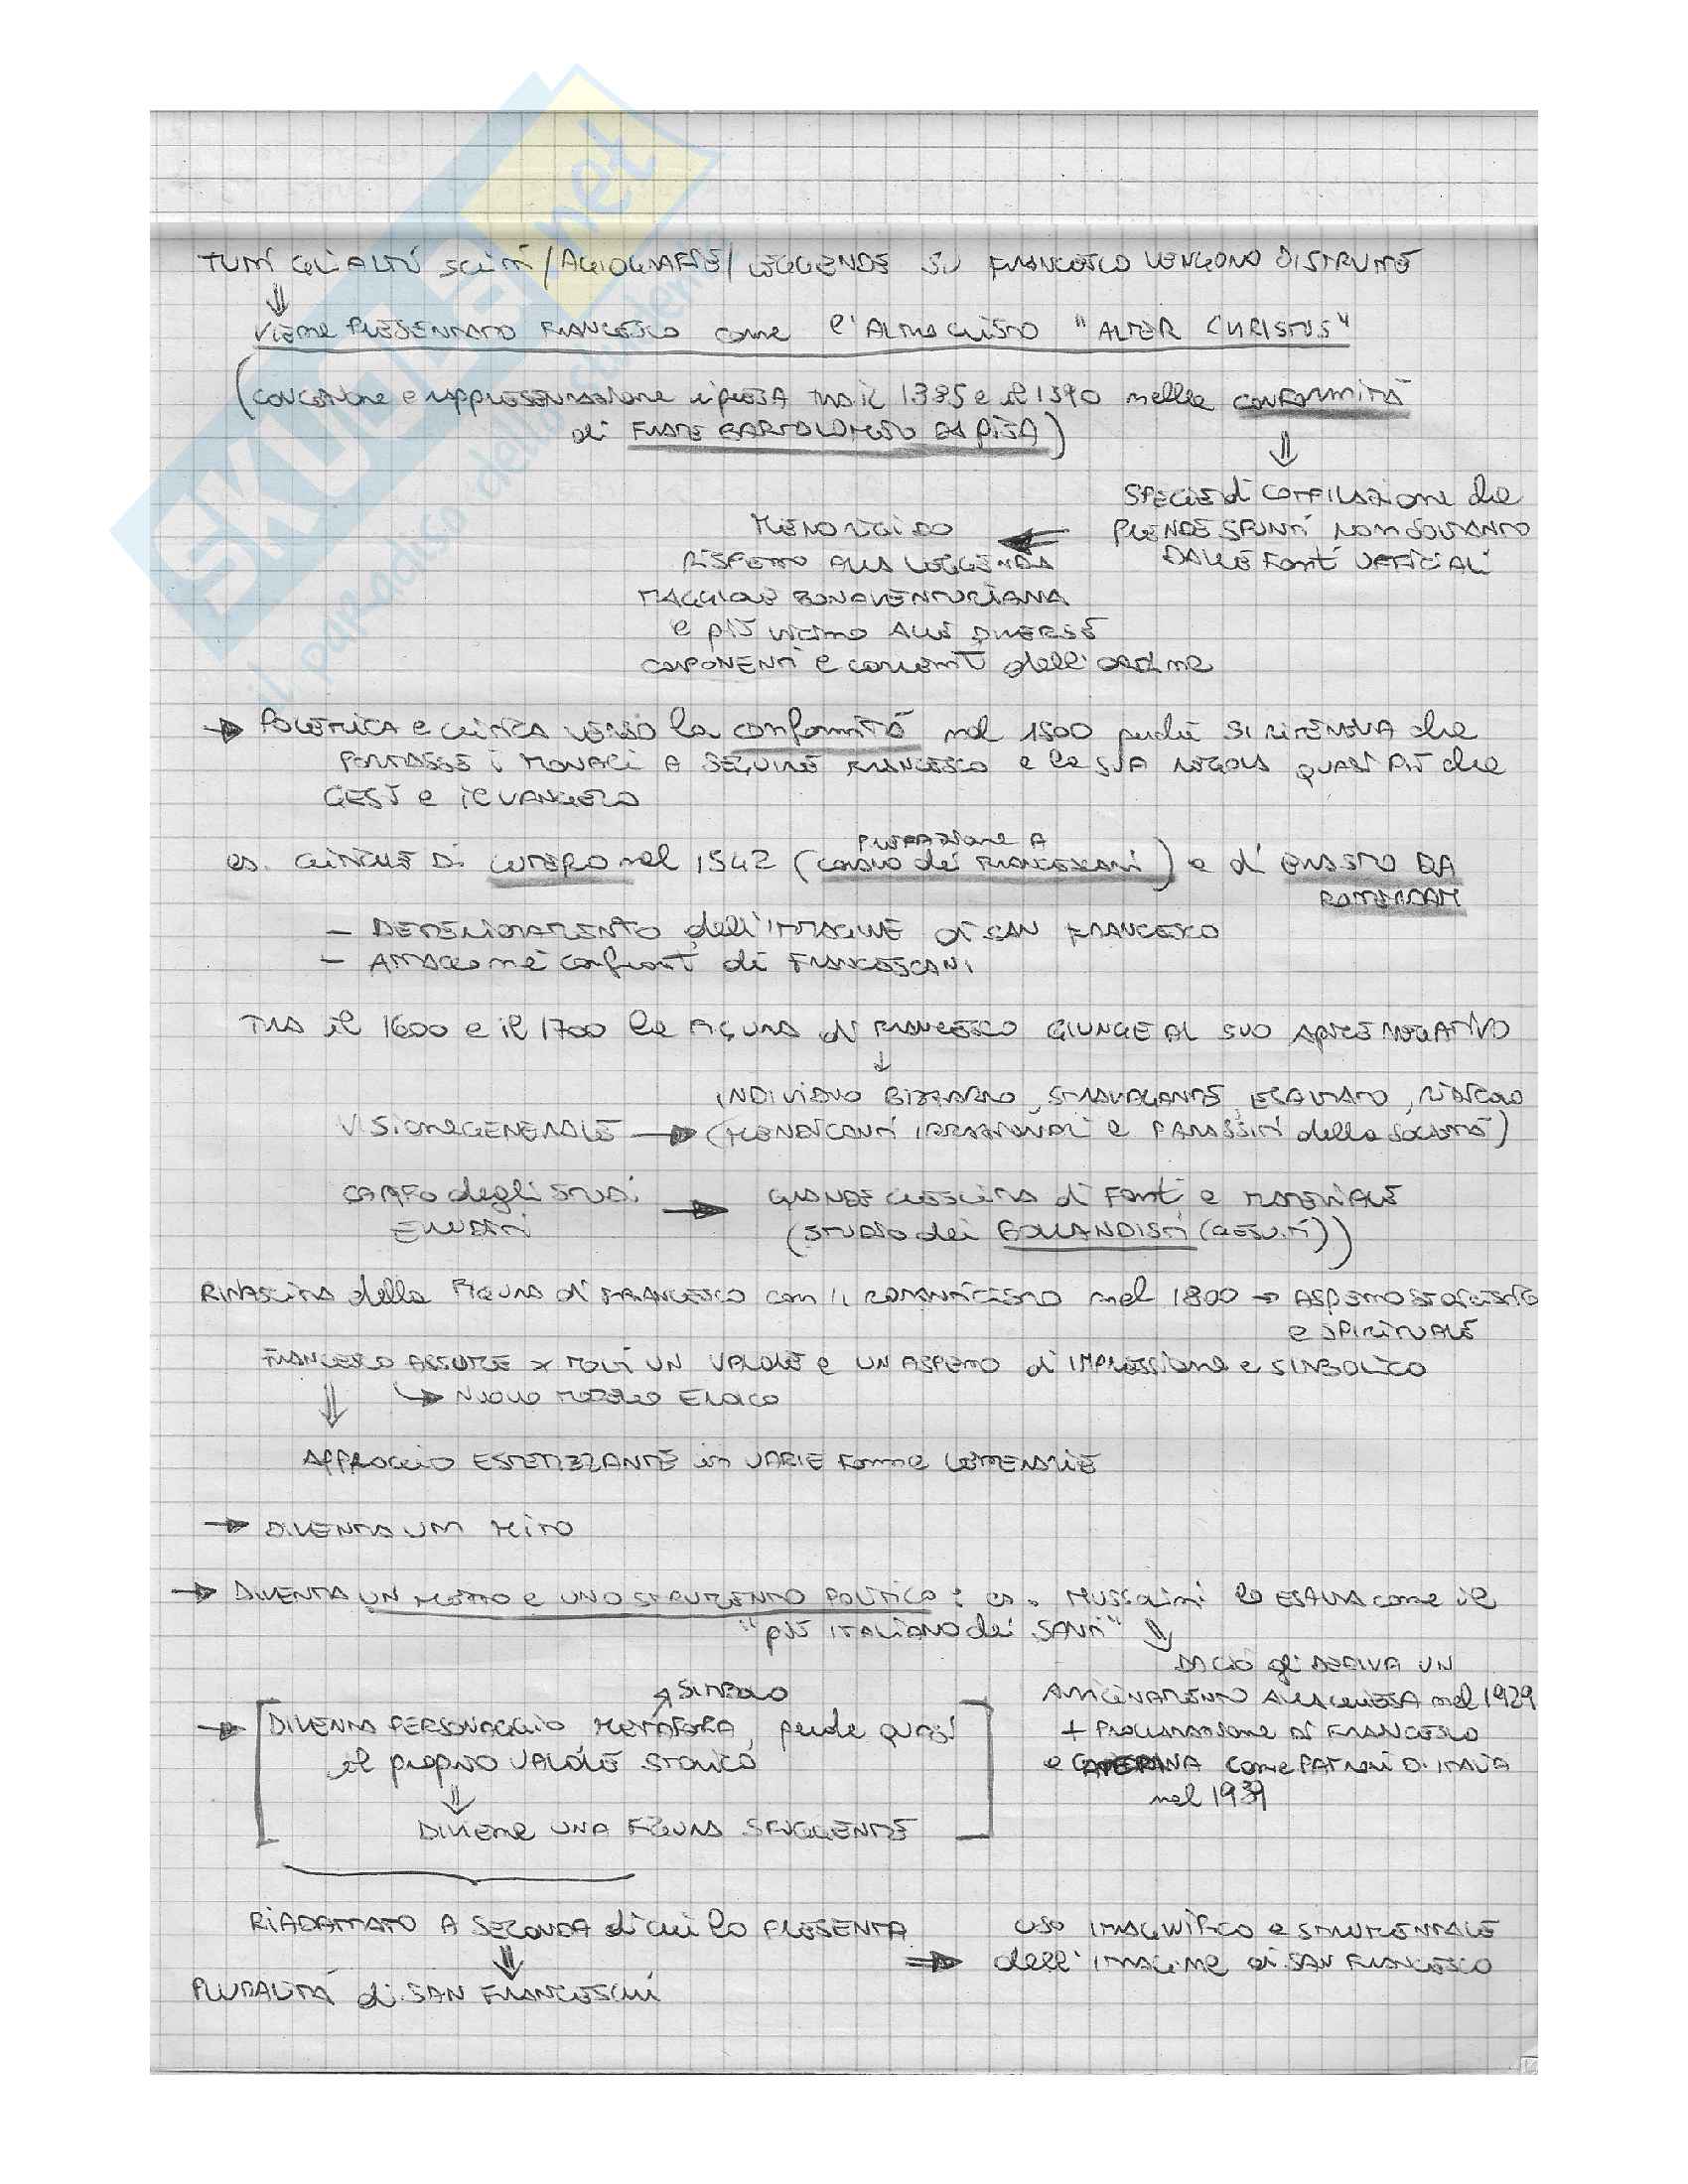 TUTTI GLI ALTRI SCRITTI / AGIOGRAFIE / LEGGENDE SU FRANCESCO VENGONO DISTRUTTE
⇓
VIENE PRESENTATO FRANCESCO come l'ALTRO CRISTO "ALTER CHRISTUS"
(CONCEZIONE e RAPPRESENTAZIONE ripresa TRA IL 1385 e il 1390 nelle CONFORMITÀ
di FRATE BARTOLOMEO DA PISA)
⇓
SPECIE di COMPILAZIONE che
PRENDE SPUNTI NON SOLTANTO
DALLE FONTI UFFICIALI
MENO RIGIDO
RISPETTO ALLA LEGGENDA
MAGGIORE BONAVENTURIANA
e più vicino ALLE DIVERSE
COMPONENTI e correnti dell'ordine
→ POLEMICA e CRITICA VERSO la conformità nel 1500 perché SI RITENEVA che
PORTASSE i MONACI A SEGUIRE FRANCESCO e la SUA REGOLA QUASI PIÙ che
GESÙ e il VANGELO
es. CRITICHE DI LUTERO nel 1542 (PREFAZIONE A Corano dei FRANCESCANI) e di ERASMO DA
ROTTERDAM
– DETERIORAMENTO dell'IMMAGINE di SAN FRANCESCO
– ATTACCO nei confronti di FRANCESCANI
TRA il 1600 e il 1700 la FIGURA di FRANCESCO GIUNGE AL SUO APICE NEGATIVO
↓
VISIONE GENERALE → INDIVIDUO BIZZARRO, STRAVAGANTE, ESALTATO, RIDICOLO
(MENDICANTI IRRAZIONALI e PARASSITI della SOCIETÀ)
CAMPO degli STUDI → GRANDE CRESCITA di Fonti e MATERIALE
ERUDITI (STUDIO dei BOLLANDISTI (GESUITI))
RINASCITA della FIGURA di FRANCESCO con il ROMANTICISMO nel 1800 → ASPETTO STORICISTICO
e SPIRITUALE
FRANCESCO ASSUME x MOLTI UN VALORE e UN ASPETTO di IMPRESSIONE e SIMBOLICO
↳ NUOVO MODELLO EROICO
⇓
APPROCCIO ESTETIZZANTE in VARIE Forme LETTERARIE
→ DIVENTA UN MITO
→ DIVENTA UN MOTTO e UNO STRUMENTO POLITICO: es. Mussolini lo ESALTA come il
"più ITALIANO dei SANTI" ⇓
DA CIÒ gli DERIVA UN
AVVICINAMENTO ALLA CHIESA nel 1929
+ PROCLAMAZIONE DI FRANCESCO
e CATERINA come PATRONI D'ITALIA
nel 1939
↗ SIMBOLO
→ [DIVENTA PERSONAGGIO METAFORA, perde quasi
il proprio VALORE STORICO
⇓
DIVIENE UNA FIGURA SFUGGENTE]
RIADATTATO A SECONDA di chi lo PRESENTA
⇓
⇒ USO IMMAGINIFICO e STRUMENTALE
dell'IMMAGINE di SAN FRANCESCO
PLURALITÀ di SAN FRANCESCHI
SKUOLA.net
il paradiso dello studente